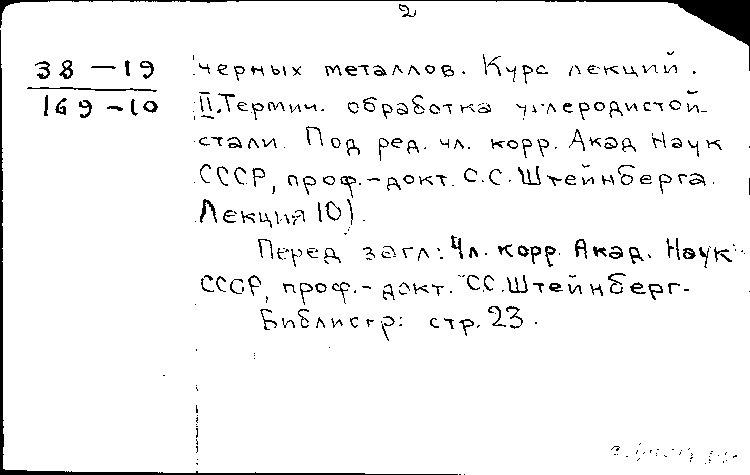 2
38 — 19
169 — 10
черных металлов. Курс лекций.
II. Термич. обработка углеродистой
стали. Под ред. чл. корр. Акад Наук
СССР, проф.-докт. С.С. Штейнберга.
Лекция 10).
Перед загл: Чл. корр. Акад. Наук
СССР, проф.- докт. С.С. Штейнберг.
Библиогр: стр. 23.